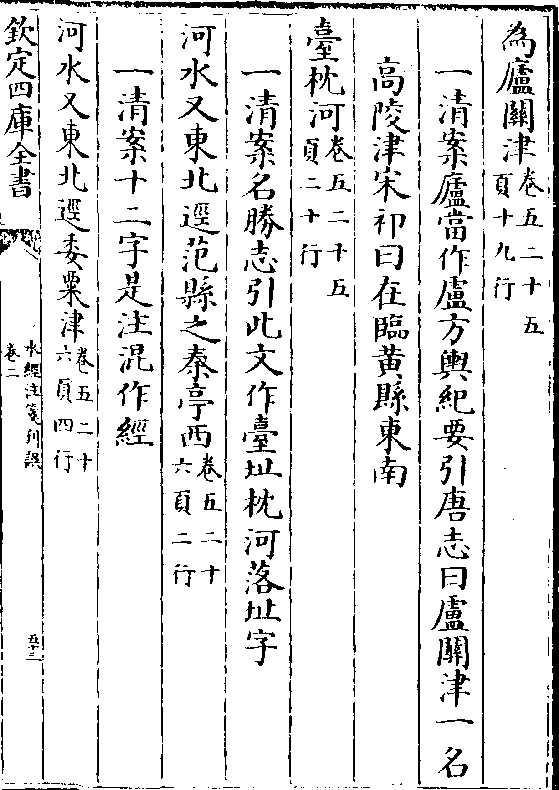 為廬關津卷五二十五頁十九行
一清案廬當作盧方輿紀要引唐志曰盧關津一名
高陵津宋祁曰在臨黃縣東南
臺枕河卷五二十五頁二十行
一清案名勝志引此文作臺址枕河落址字
河水又東北逕范縣之秦亭西卷五二十六頁二行
一清案十二字是注混作經
河水又東北逕委粟津卷五二十六頁四行
欽定四庫全書
水經注箋刊誤
卷二
五十三